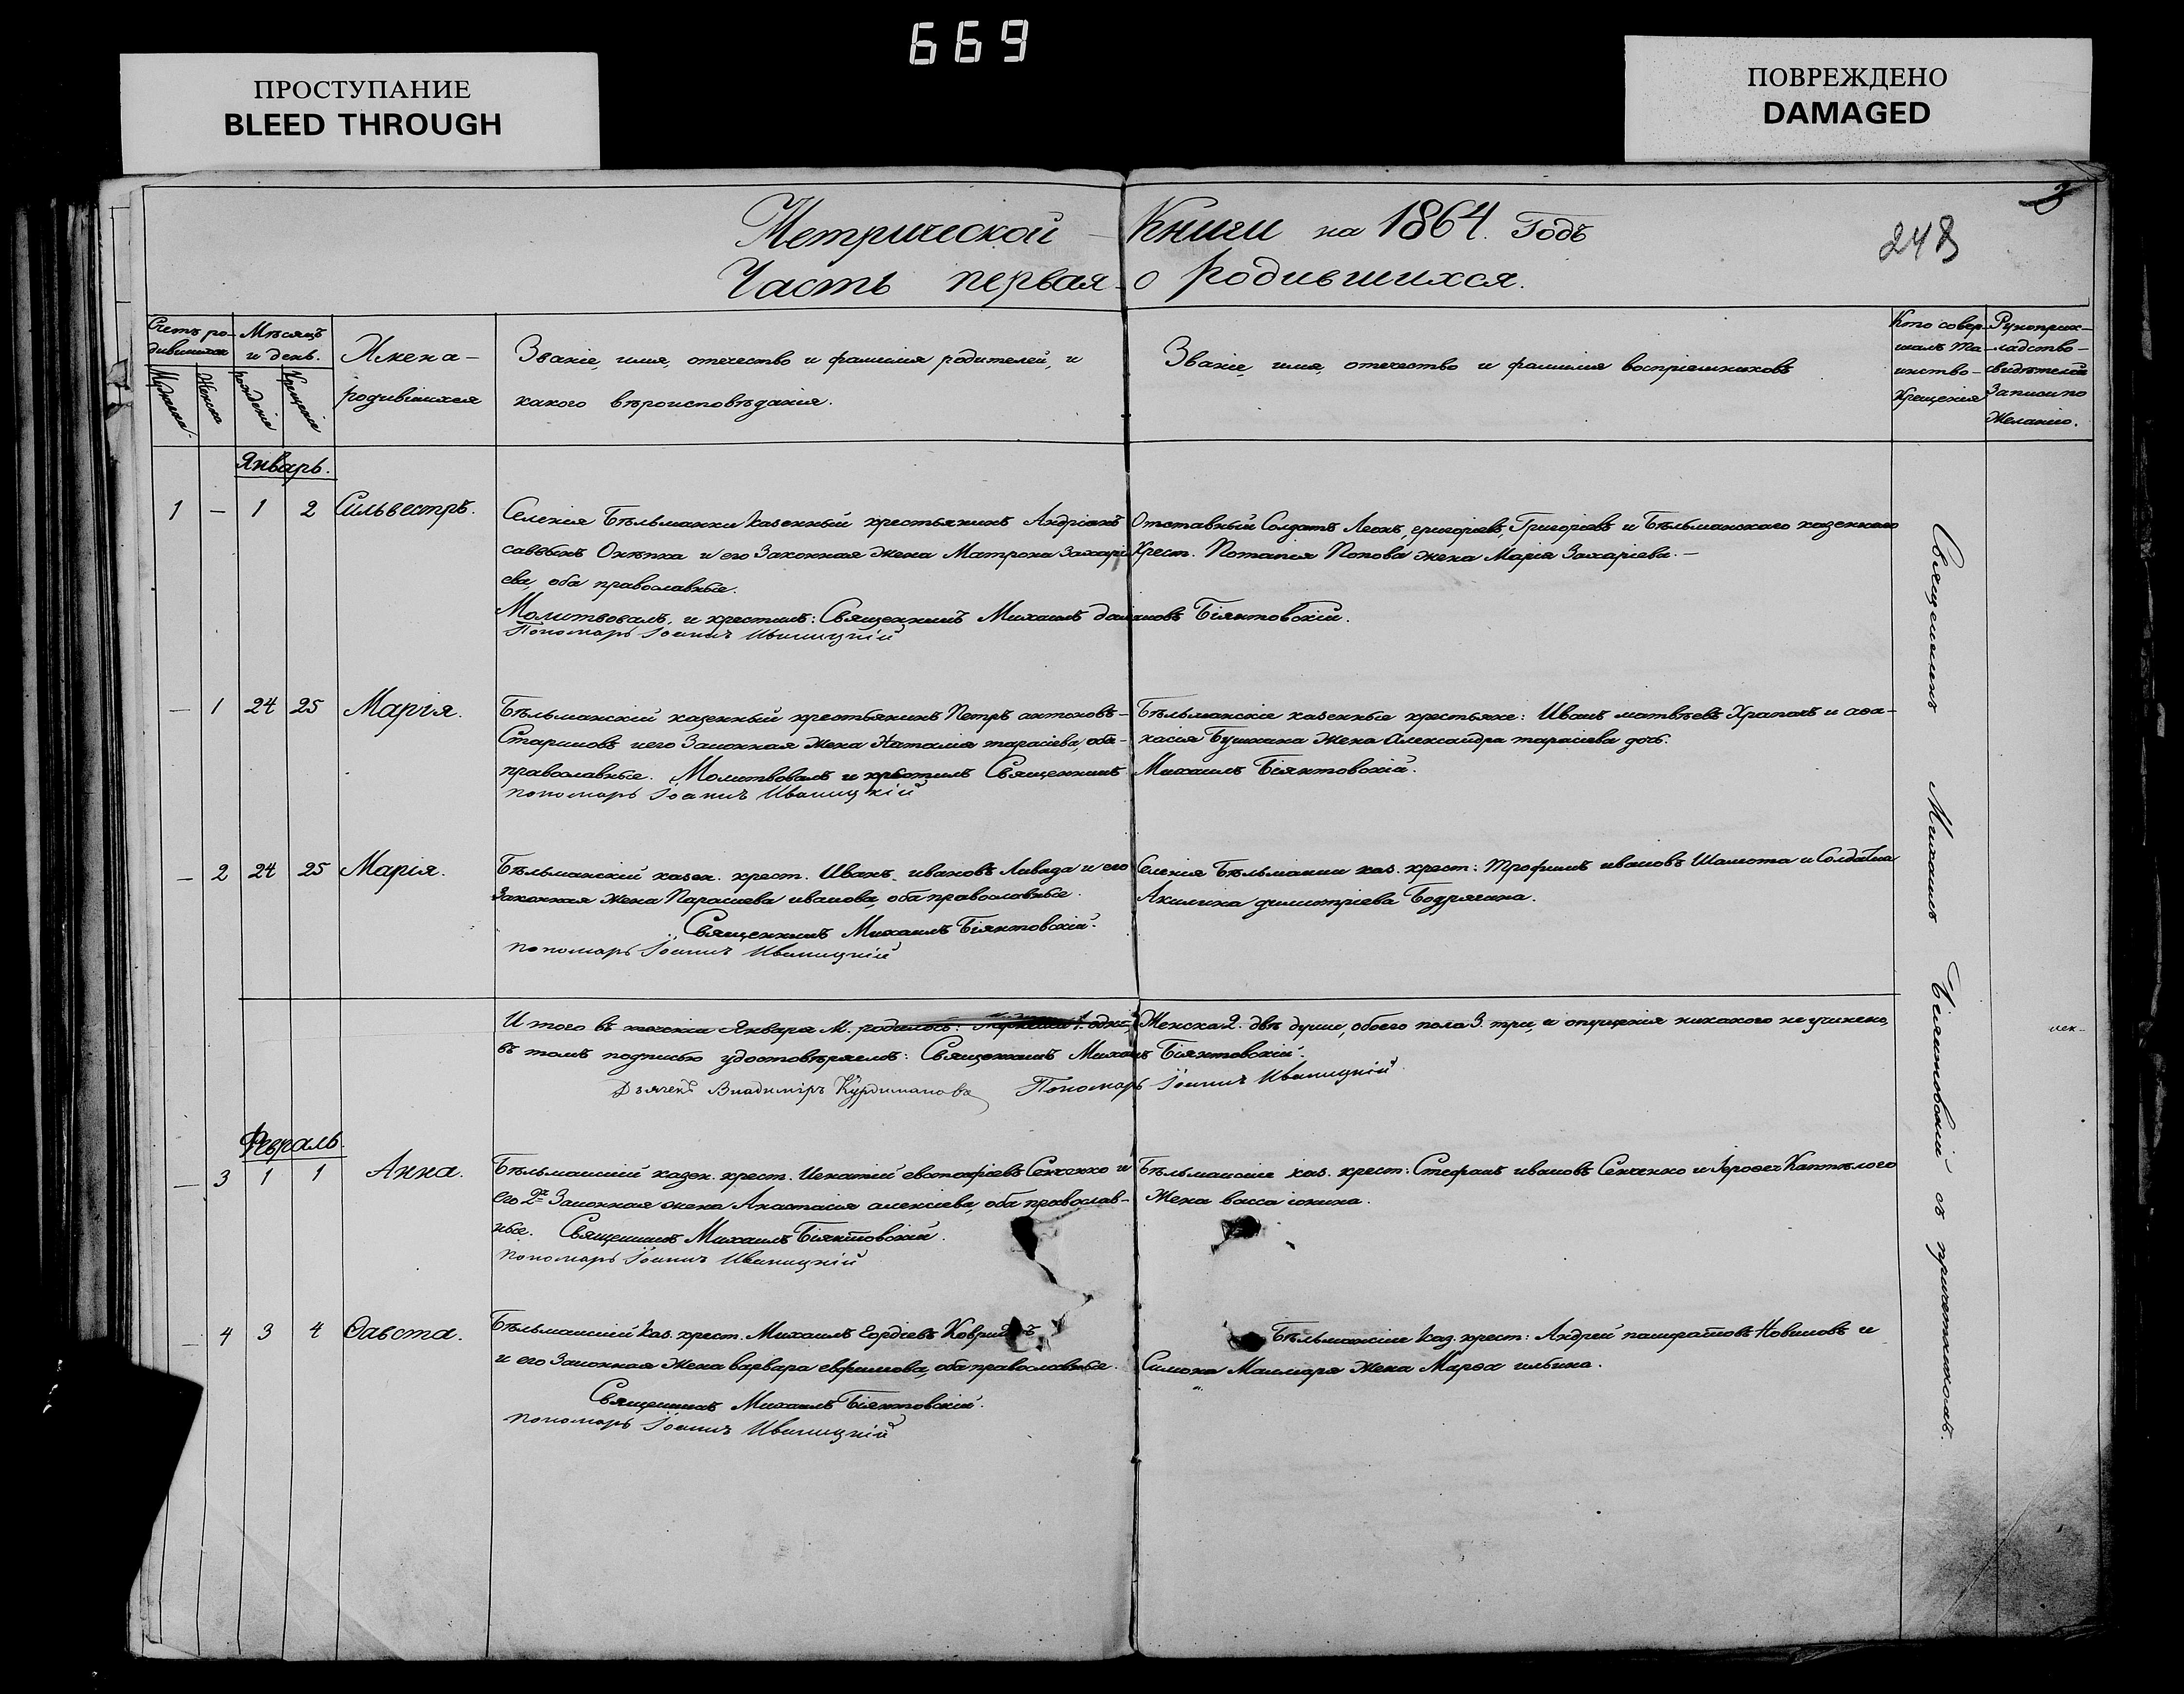 669
ПРОСТУПАНИЕ
BLEED THROUGH
ПОВРЕЖДЕНО
DAMAGED
248
Метрической Книги на 1864. Годъ
Часть первая о родившихся.
Счетъ родившихся
Мужеска.
Женска
Мѣсяцъ и день.
рожденія
Крещенія
Имена родившихся
Званіе, имя, отчество и фамилія родителей, и
какого вѣроисповѣданія.
Званіе, имя, отчество и фамилія воспріемниковъ
Кто совершалъ таинство Крещенія
Рукоприкладство свидѣтелей Записи по Желанію.
Январь.
1 – 1 2 Сильвестръ.
Селенія Бѣльманки казенный крестьянинъ Андріанъ
саввинъ и его Законная жена Матрона Захаріева, оба православные.
Молитвовалъ и крестилъ: Священникъ Михаилъ Біянтовскій.
Пономарь Іоаннъ Ивницкій
Отставный Солдатъ Леонъ, григоріевъ, Григоріевъ и Бѣльманскаго казеннаго
Крест. Потапія Попова жена Марія Захаріева. –
– 1 24 25 Марія.
Бѣльманскій казенный крестьянинъ Петръ антоновъ
Стариковъ и его Законная жена Наталія тарасіева, оба
православные. Молитвовалъ и крестилъ Священникъ Михаилъ Біянтовскій.
пономарь Іоаннъ Ивницкій
Бѣльманскіе казенные крестьяне: Иванъ матвѣевъ Храпачъ и
Бушкина жена Александра тарасіева дочь.
– 2 24 25 Марія.
Бѣльманскій казен. крест. Иванъ ивановъ Ливада и его
Законная жена Параскева иванова, оба православные.
Священникъ Михаилъ Біянтовскій.
пономарь Іоаннъ Ивницкій
Селенія Бѣльманки каз. крест: Трофимъ ивановъ Шамота и Солдатка
Акилина димитріева Бодрягина.
Итого въ Январѣ М. родилось: 1. одна, Женска 2. двѣ души, обоего пола 3. три, и опущенія никакого не учинено,
въ томъ подписью удостовѣряемъ: Священникъ Михаилъ Біянтовскій.
Дьячекъ Владиміръ Пономарь Іоаннъ Ивницкій
Февраль
– 3 1 1 Анна.
Бѣльманскій казен. крест. Игнатій евстафіевъ Сенченко и
его 2я Законная жена Анастасія алексіева, оба православные. Священникъ Михаилъ Біянтовскій.
пономарь Іоаннъ Ивницкій
Бѣльманскіе каз. крест: Стефанъ ивановъ Сенченко и Іероѳея Каптѣлого
Жена васса іонина.
– 4 3 4 Ѳавста.
Бѣльманскій каз. крест. Михаилъ гордіевъ
и его Законная жена варвара ефимова, оба православные.
Священникъ Михаилъ Біянтовскій.
пономарь Іоаннъ Ивницкій
Бѣльманскіе каз. крест: Андрей панкратовъ Новиковъ и
Симона жена Марѳа ильина.
Священникъ Михаилъ Біянтовскій съ причетникомъ.